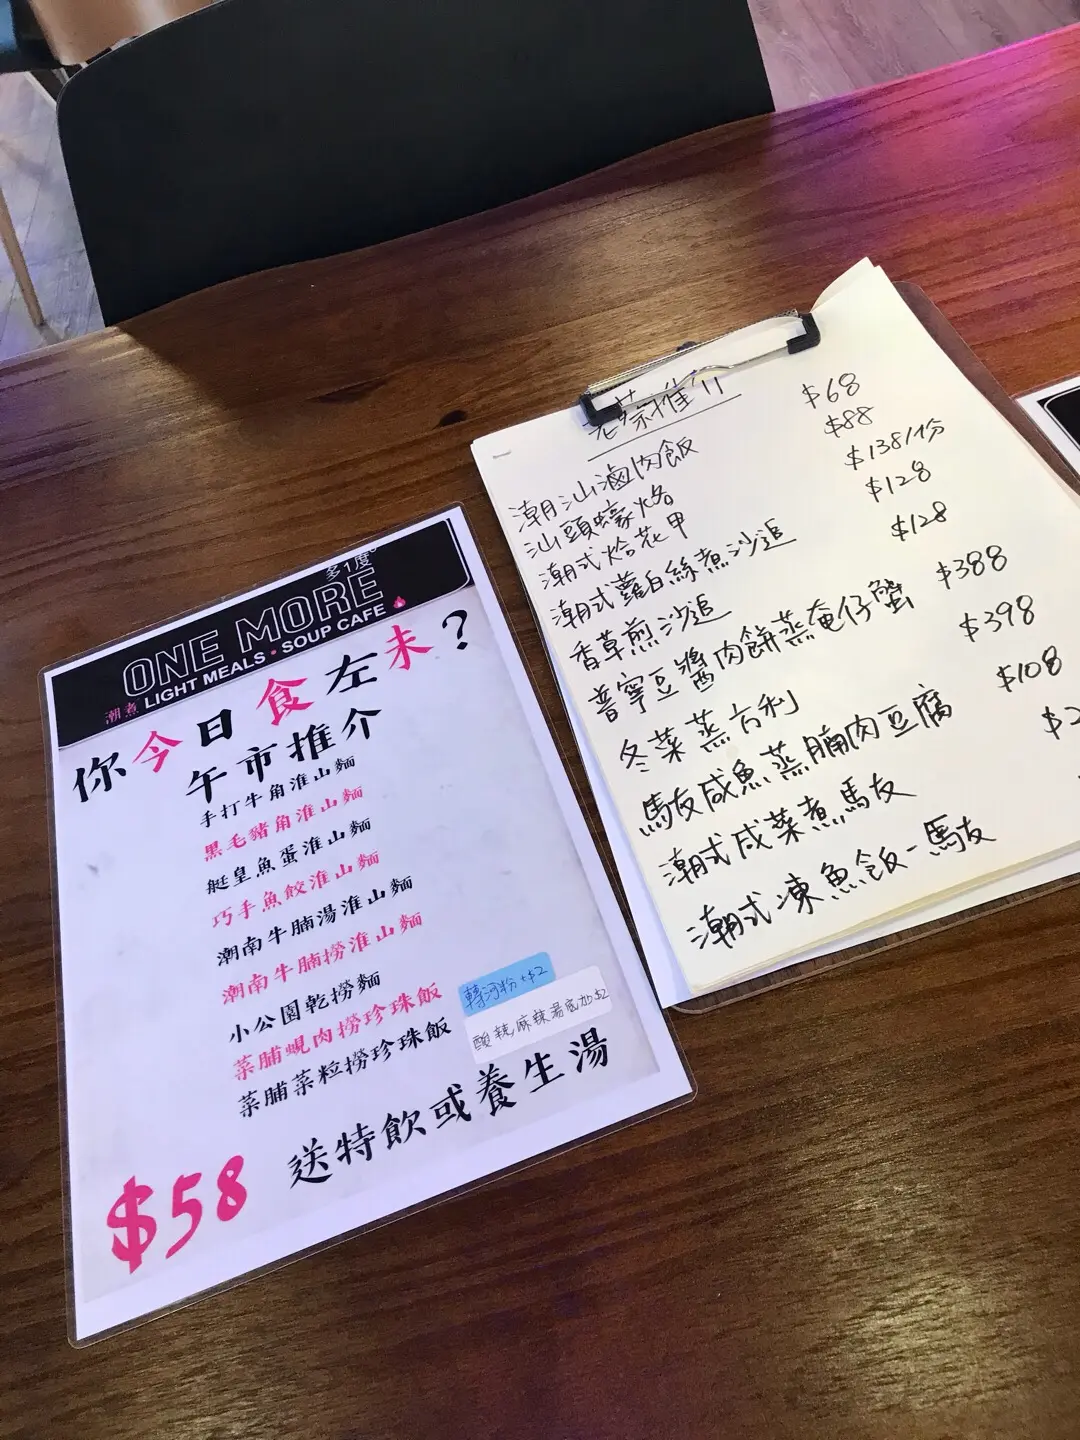 多1度°
ONE MORE
潮煮 LIGHT MEALS • SOUP CAFE
你今日食左未?
午市推介
手打牛角淮山麵
黑毛豬角淮山麵
艇皇魚蛋淮山麵
巧手魚餃淮山麵
潮南牛腩湯淮山麵
潮南牛腩撈淮山麵
小公園乾撈麵
菜脯蜆肉撈珍珠飯
菜脯菜粒撈珍珠飯
轉河粉+$2
酸辣,麻辣湯底加$2
送特飲或養生湯
$58
老蔡推介
潮汕滷肉飯 $68
汕頭蠔烙 $88
潮式烚花甲 $138/1份
潮式蘿白絲煮沙追 $128
香草煎沙追 $128
普寧豆醬肉餅蒸奄仔蟹 $388
冬菜蒸方利 $398
馬友咸魚蒸腩肉豆腐 $108
潮式咸菜煮馬友 $2
潮式凍魚飯-馬友